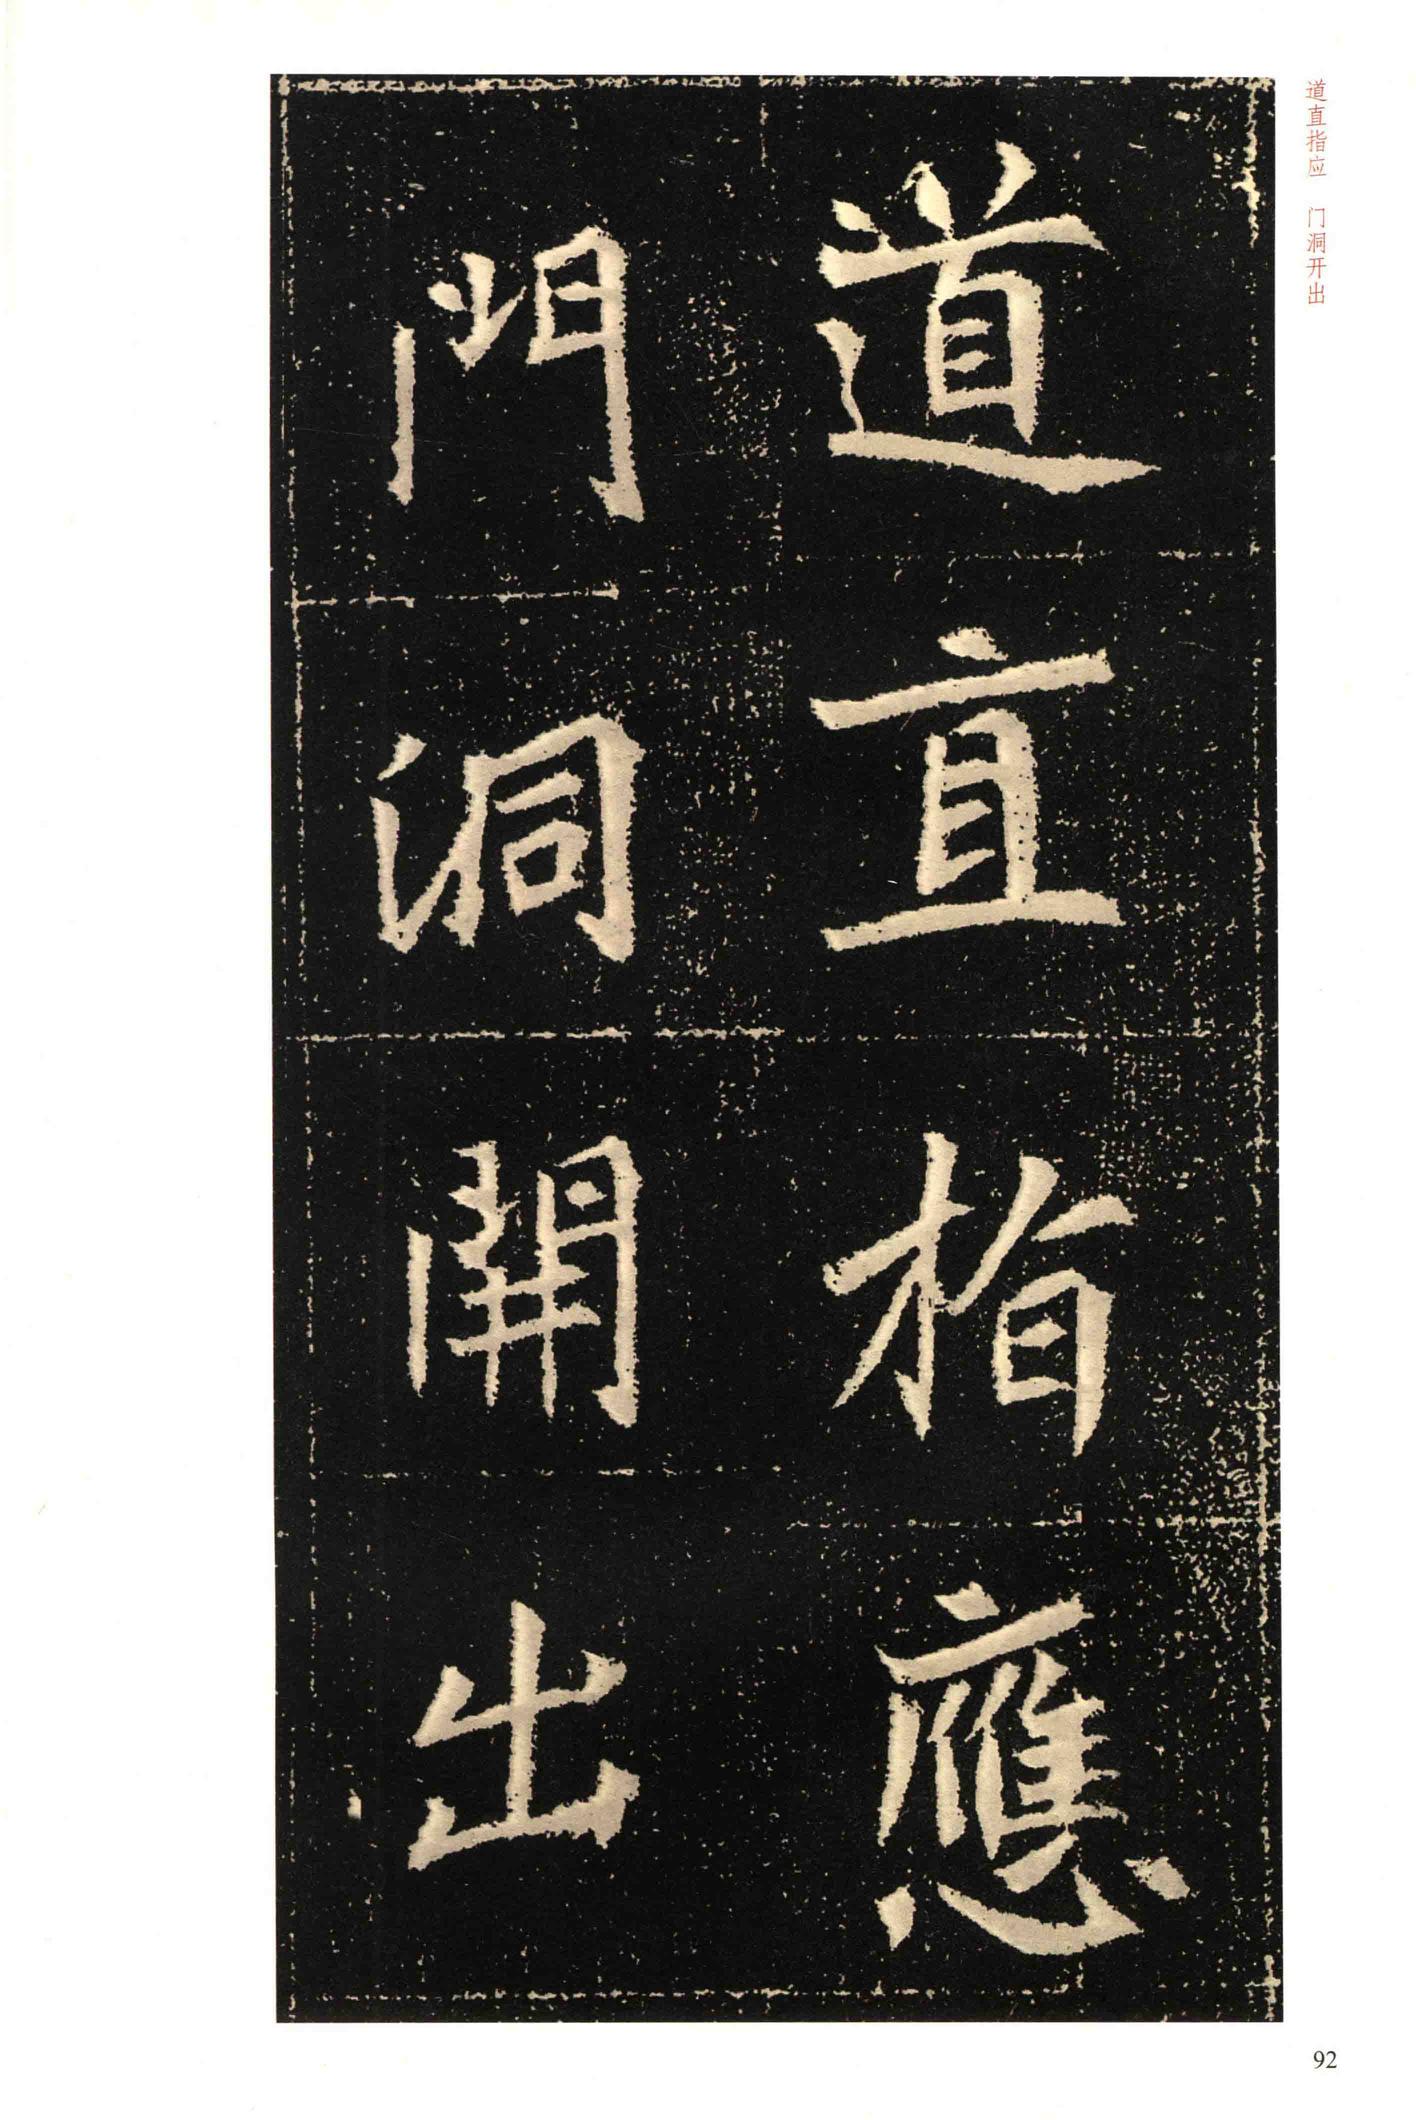 道直指應
門洞開出
道直指应 门洞开出
92